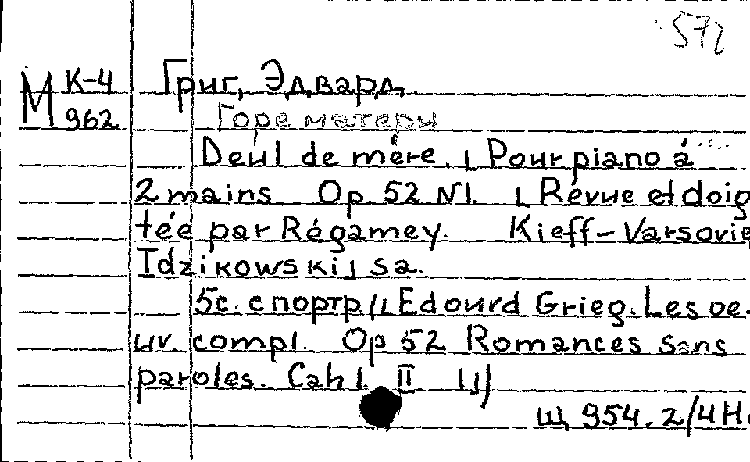 572
М К-4 Григ, Эдвард.
962 Горе матери
Deul de mère. [Pour piano à
2 mains Op 52 N1. [Révue et doig
tée par Régamey. Kieff-Varsovie
Idzikowski] s a.
5с. с портр. /[Edourd Grieg. Les oe.
uv. compl. Op 52 Romances sans
paroles. Cah 1. II 1]/
Щ 954.2/4Н